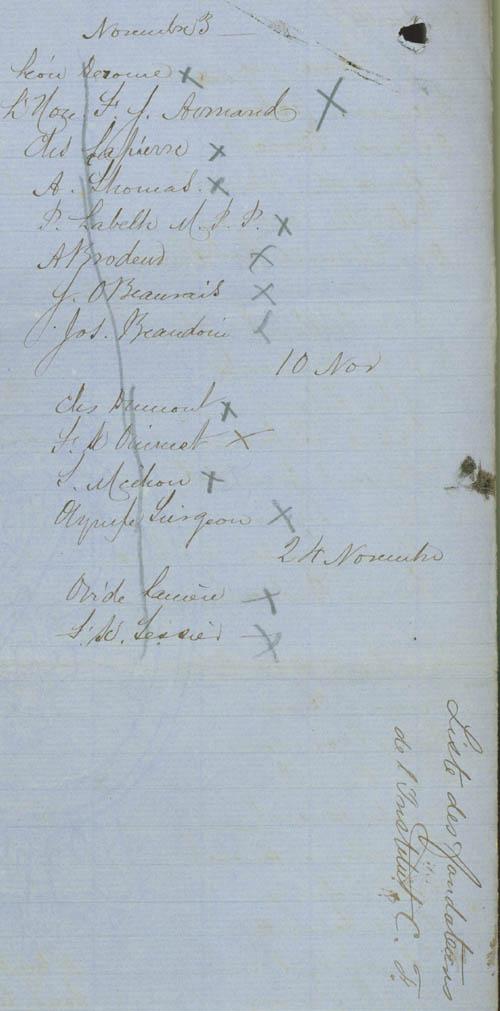 Novembre 3
Léon Derome
L'Hon F. J. Armand
Chs Lapierre
A. Thomas
P. Labelle M. P. P.
A Brodeur
J. O Beaurais
Jos. Beaudoin
10 Nov
Chs Dumont
F. X Ouimet
S. Méthou
Olympe Turgeon
24 Novembre
Ovide Larivière
Tessier
Liste des fondateurs
de l'Institut C. F.